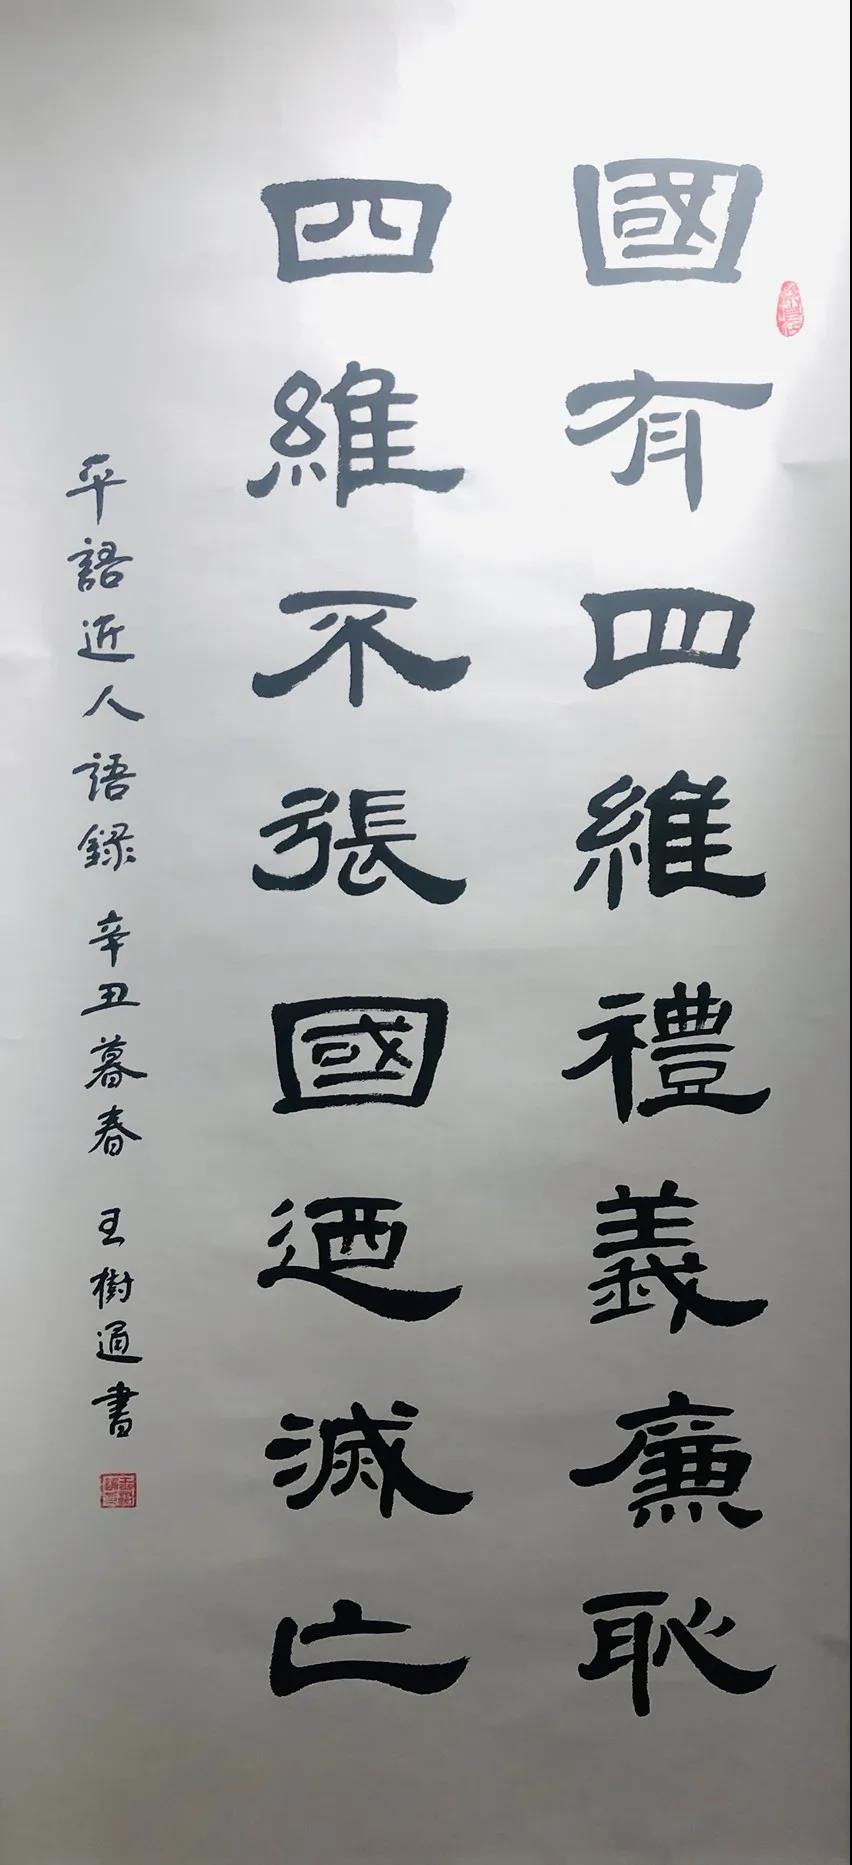 國有四維禮義廉恥
四維不張國迺滅亡
平語近人語録 辛丑暮春 王樹通書